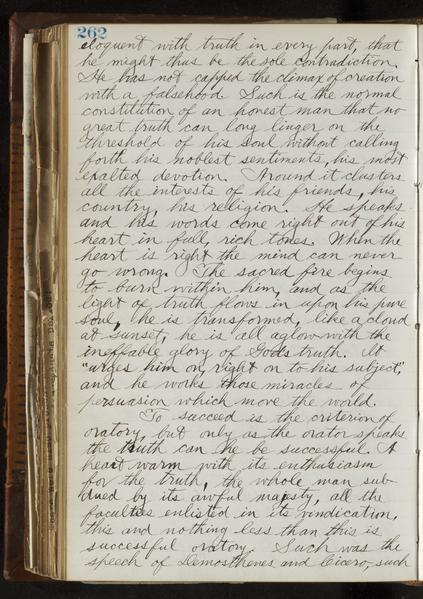 262
eloquent with truth in every part, that
he might thus be the sole contradiction.
He has not capped the climax of creation
with a falsehood. Such is the normal
constitution of an honest man that no
great truth can long linger on the
threshold of his soul without calling
forth his noblest sentiments, his most
exalted devotion. Around it clusters
all the interests of his friends, his
country, his religion. He speaks
and his words come right out of his
heart in full, rich tones. When the
heart is right the mind can never
go wrong. The sacred fire begins
to burn within him, and as the
light of truth flows in upon his pure
soul, he is transformed, like a cloud
at sunset, he is all aglow with the
ineffable glory of God's truth. It
"urges him on, right on to his subject",
and he works those miracles of
persuasion which move the world.
To succeed is the criterion of
oratory, but only as the orator speaks
the truth can he be successful. A
heart warm with its enthusiasm
for the truth, the whole man sub-
dued by its awful majesty, all the
faculties enlisted in its vindication,
this and nothing less than this is
successful oratory. Such was the
speech of Demosthenes and Cicero, such